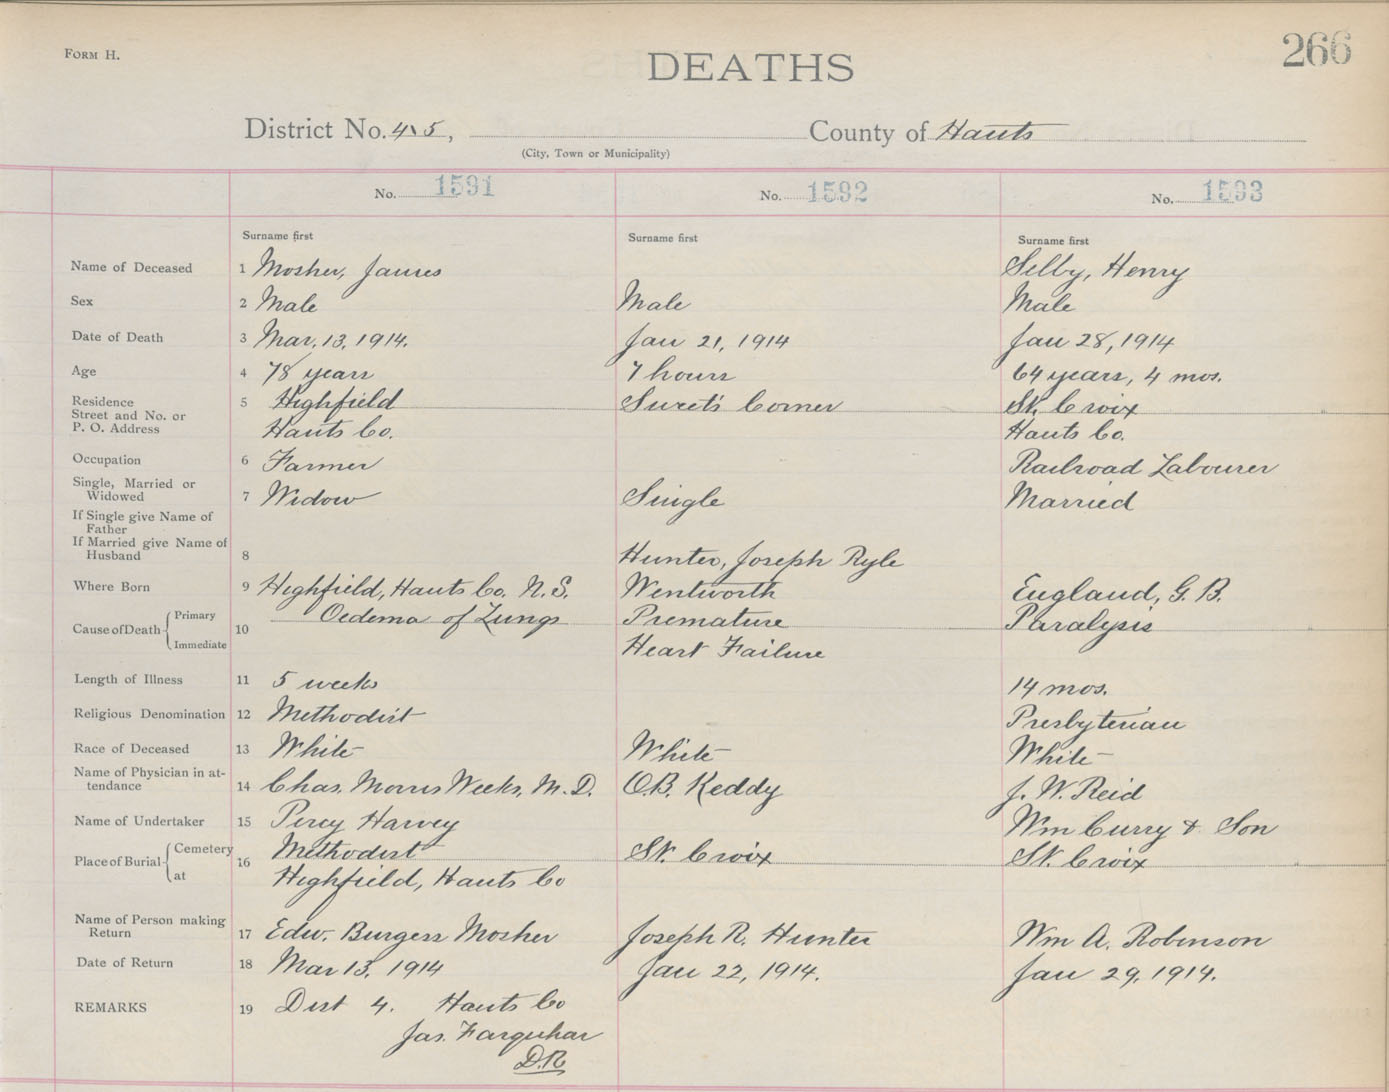 FORM H.
DEATHS
266
District No. 4 & 5, County of Hants
(City, Town or Municipality)
No. 1591 No. 1592 No. 1593
Surname first Surname first Surname first
Name of Deceased 1 Mosher, James Selby, Henry
Sex 2 Male Male Male
Date of Death 3 Mar. 13, 1914. Jan 21, 1914 Jan 28, 1914
Age 4 78 years 7 hours 64 years, 4 mos.
Residence 5 Highfield Sweet's Corner St. Croix
Street and No. or
P. O. Address Hants Co. Hants Co.
Occupation 6 Farmer Railroad Labourer
Single, Married or
Widowed 7 Widow Single Married
If Single give Name of
Father
If Married give Name of
Husband 8 Hunter, Joseph Ryle
Where Born 9 Highfield, Hants Co. N.S. Wentworth England, G.B.
Cause of Death Primary 10 Oedema of Lungs Premature Paralysis
Immediate Heart Failure
Length of Illness 11 5 weeks 14 mos.
Religious Denomination 12 Methodist Presbyterian
Race of Deceased 13 White White White
Name of Physician in at-
tendance 14 Chas. Morris Weeks, M.D. O.B. Keddy J. W. Reid
Name of Undertaker 15 Percy Harvey Wm Curry & Son
Place of Burial Cemetery 16 Methodist St. Croix St. Croix
at Highfield, Hants Co
Name of Person making
Return 17 Edw. Burgess Mosher Joseph R. Hunter Wm A. Robinson
Date of Return 18 Mar 13, 1914 Jan 22, 1914. Jan 29, 1914.
REMARKS 19 Dist 4. Hants Co
Jas. Farquhar
D.R.